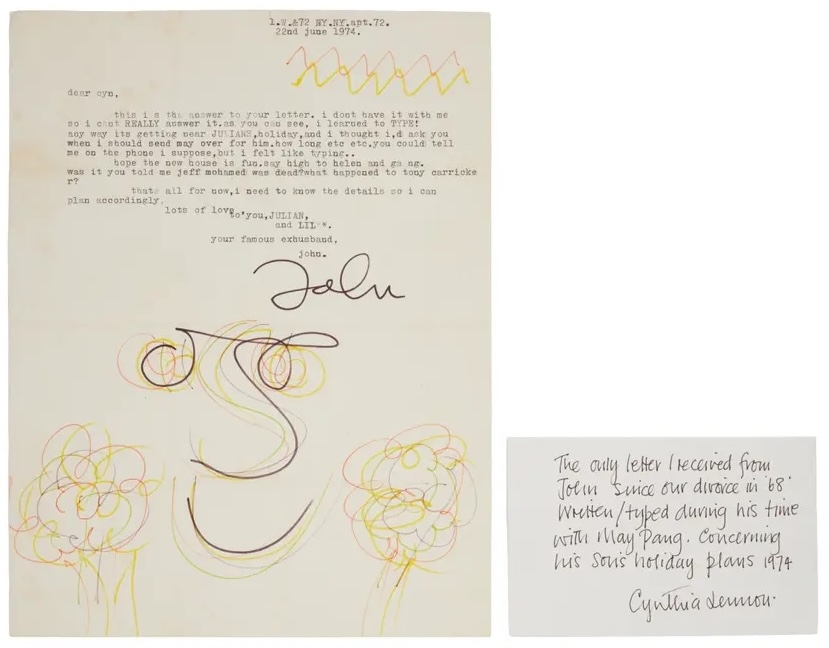 1.W.&72 NY.NY.apt.72.
22nd june 1974.
dear cyn,
this i s the answer to your letter. i dont have it with me
so i cant REALLY answer it.as you can see, i learned to TYPE!
any way its getting near JULIANS,holiday,and i thought i,d ask you
when i should send may over for him.how long etc etc.you could tell
me on the phone i suppose,but i felt like typing..
hope the new house is fun.say high to helen and ga ng.
was it you told me jeff mohamed was dead?what happened to tony carricke
r?
thats all for now,i need to know the details so i can
plan accordingly.
lots of love
to'you,JULIAN,
and LIL**.
your famous exhusband,
john.
John
The only letter I received from
John since our divorce in '68'
Written/typed during his time
with May Pang. Concerning
his Sons holiday plans 1974
Cynthia Lennon.